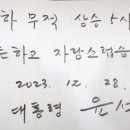 하 무적 상승 5사
하고 자랑스럽습
2023. 12. 28.
대통령 윤석